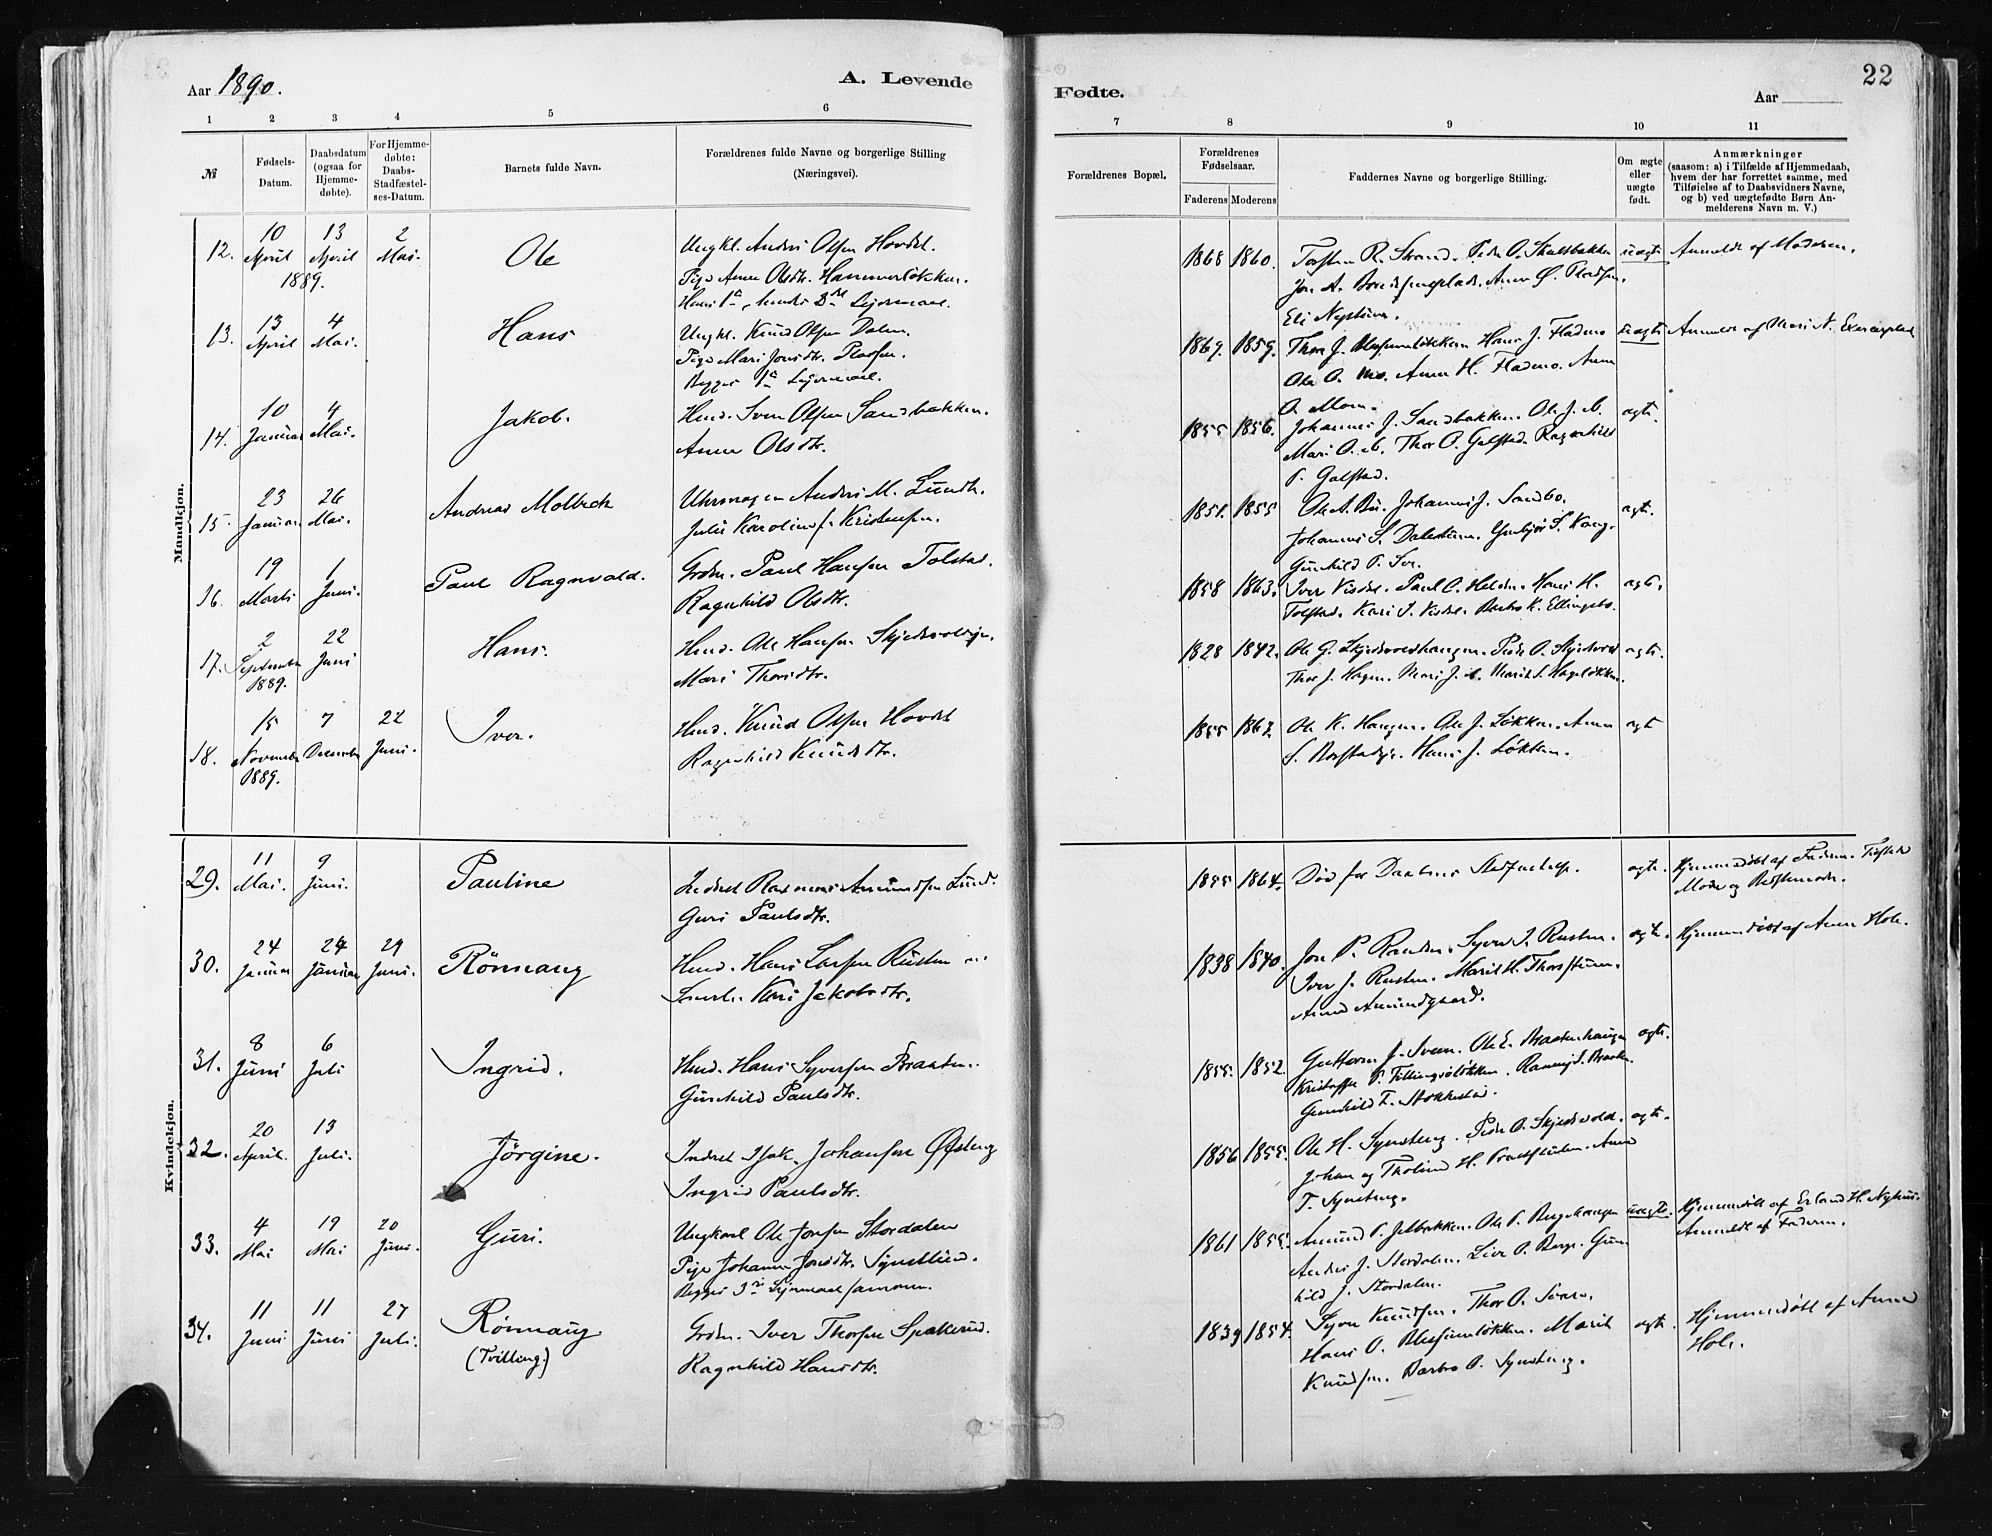 Aar 1890.
A. Levende
Fødte.
Aar
22
1 2 3 4 5 6 7 8 9 10 11
№
Fødsels-
Datum.
Daabsdatum
(ogsaa for
Hjemme-
døbte).
For Hjemme-
døbte:
Daabs-
Stadfæstel-
ses-Datum.
Barnets fulde Navn.
Forældrenes fulde Navne og borgerlige Stilling
(Næringsvei).
Forældrenes Bopæl.
Forældrenes
Fødselsaar.
Faderens Moderens
Faddernes Navne og borgerlige Stilling.
Om ægte
eller
uægte
født.
Anmærkninger
(saasom: a) i Tilfælde af Hjemmedaab,
hvem der har forrettet samme, med
Tilføielse af to Daabsvidners Navne,
og b) ved uægtefødte Børn An-
melderens Navn m. V.)
Mandkjøn.
12. 10 April 13 April 2 Mai.
1889.
Ole
Ungkl. Anders Olsen Hovdet.
Pige Anne Olsdtr. Hammerløkken.
1868 1860.
Torsten R. Strand. Peder O. Skaltbakken
uægte
Anmeldt af Moderen.
Eli Neptun.
13. 13 April 4 Mai.
Hans
Ungkl. Knud Olsen Dalen.
Pige Mari Jonsdtr.
Begges
1867. 1859.
Hans J. Fladmo
Ole O. Mo. Anne H. Fladmo. Anne
O. Moen.
uægte
Anmeldt af Mari N.
14. 10 Januar 4 Mai.
Jakob.
Hmd. Iver Olsen Sandbakken.
Anne Olsdtr.
1855 1856.
Johannes J. Sandbakken. Ole J. ib.
Mari O. ib. Thor P. Galstad. Ragnhild
P. Galstad.
ægte.
15. 23 Januar 26 Mai.
Andreas Molbech
Uhrmager Anders M. Lundh.
Julie Karoline f. Kristensen.
1851. 1855
Ole A. Bu. Johannes J. Sandbo.
Johannes S.
Gunhild P.
ægte.
16. 19 Marts 1 Juni.
Paul Ragnvald.
Grdm. Paul Hansen Tolstad.
Ragnhild Olsdtr.
1858 1863.
Iver Visdal. Paul C. Helden. Hans H.
Tolstad. Kari I. Visdal. Barbro K. Ellingsbø.
ægte.
17. 2 September 22 Juni
1889.
Hans.
Hmd. Ole Hansen
Mari Thorsdtr.
1828 1842.
Ole G. Skjedsvoldhaugen. Peder O.
Thor J. Hagen. Mari J. ib. Marit S. Hageløkken.
ægte.
18. 15 November 7 December 22 Juni.
1889.
Iver.
Hmd. Knud Olsen Hovdet
Ragnhild Knudsdtr.
1855 1867.
Ole K. Haugen. Ole J. Løkken. Anne
S. Hans J. Løkken.
ægte
Kvindekjøn.
29. 11 Mai. 9 Juni.
Pauline
Inderst Rasmus Amundsen Lund.
Guri Paulsdtr.
1855 1864.
Død før Daabens Stadfæstelse.
ægte.
Hjemmedøbt af Faderen.
Moder og Bestemoder.
30. 24 Januar 24 Januar 29 Juni.
Rönnaug
Hmd. Hans Larsen Rusten
Kari Jakobsdtr.
1838 1840.
Jon P. Randen. Syver I. Rusten.
Iver J. Rusten. Marit H. Thorsteinen.
Anne Amundgaard.
ægte.
Hjemmedøbt af Anne Hole.
31. 8 Juni 6 Juli
Ingrid.
Hmd. Hans Syversen Braaten.
Gunhild Paulsdtr.
1855. 1852.
Guttorm J. Sveen. Ole E. Braatenhaugen
Kristoffer P. Rannug S. Braaten.
Gunhild T.
ægte.
32. 20 April. 13 Juli.
Jörgine.
Inderst Isak Johansen Øfsteng
Ingrid Paulsdtr.
1856 1855.
Ole H. Synsteng. Peder O. Skjedsvold.
Johan og Tholine H. Anne
T. Synsteng.
ægte.
33. 4 Mai 19 Mai 20 Juni.
Guri.
Ungkarl Ole Jonsen Stordalen
Pige Johanne Jonsdtr. Synstlien.
Begges 3die Leiermaal sammen.
1861 1855.
Amund P. Jetbakken. Ole P. Berghaugen
Anders J. Stordalen. Live P. Berge. Gun-
hild J. Stordalen.
uægte.
Hjemmedøbt af Erland H.
Anmeldt af Faderen.
34. 11 Juni 11 Juni 27 Juli.
Rönnaug
(Tvilling)
Grdm. Iver Thorsen Spakrud.
Ragnhild Hansdtr.
1839 1854.
Syver Knudsen. Thor O.
Hans O. Marit
Knudsen. Barbro O. Synsteng.
ægte.
Hjemmedøbt af Anne
Hole.